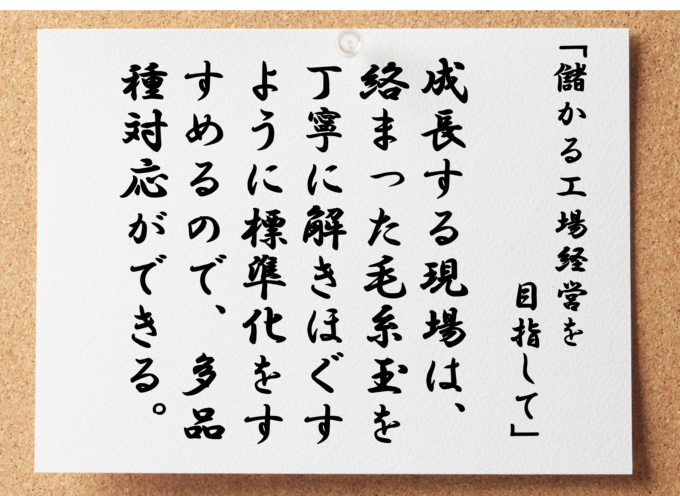 「儲かる工場経営を
目指して」
成長する現場は、
絡まった毛糸玉を
丁寧に解きほぐす
ように標準化をす
すめるので、多品
種対応ができる。